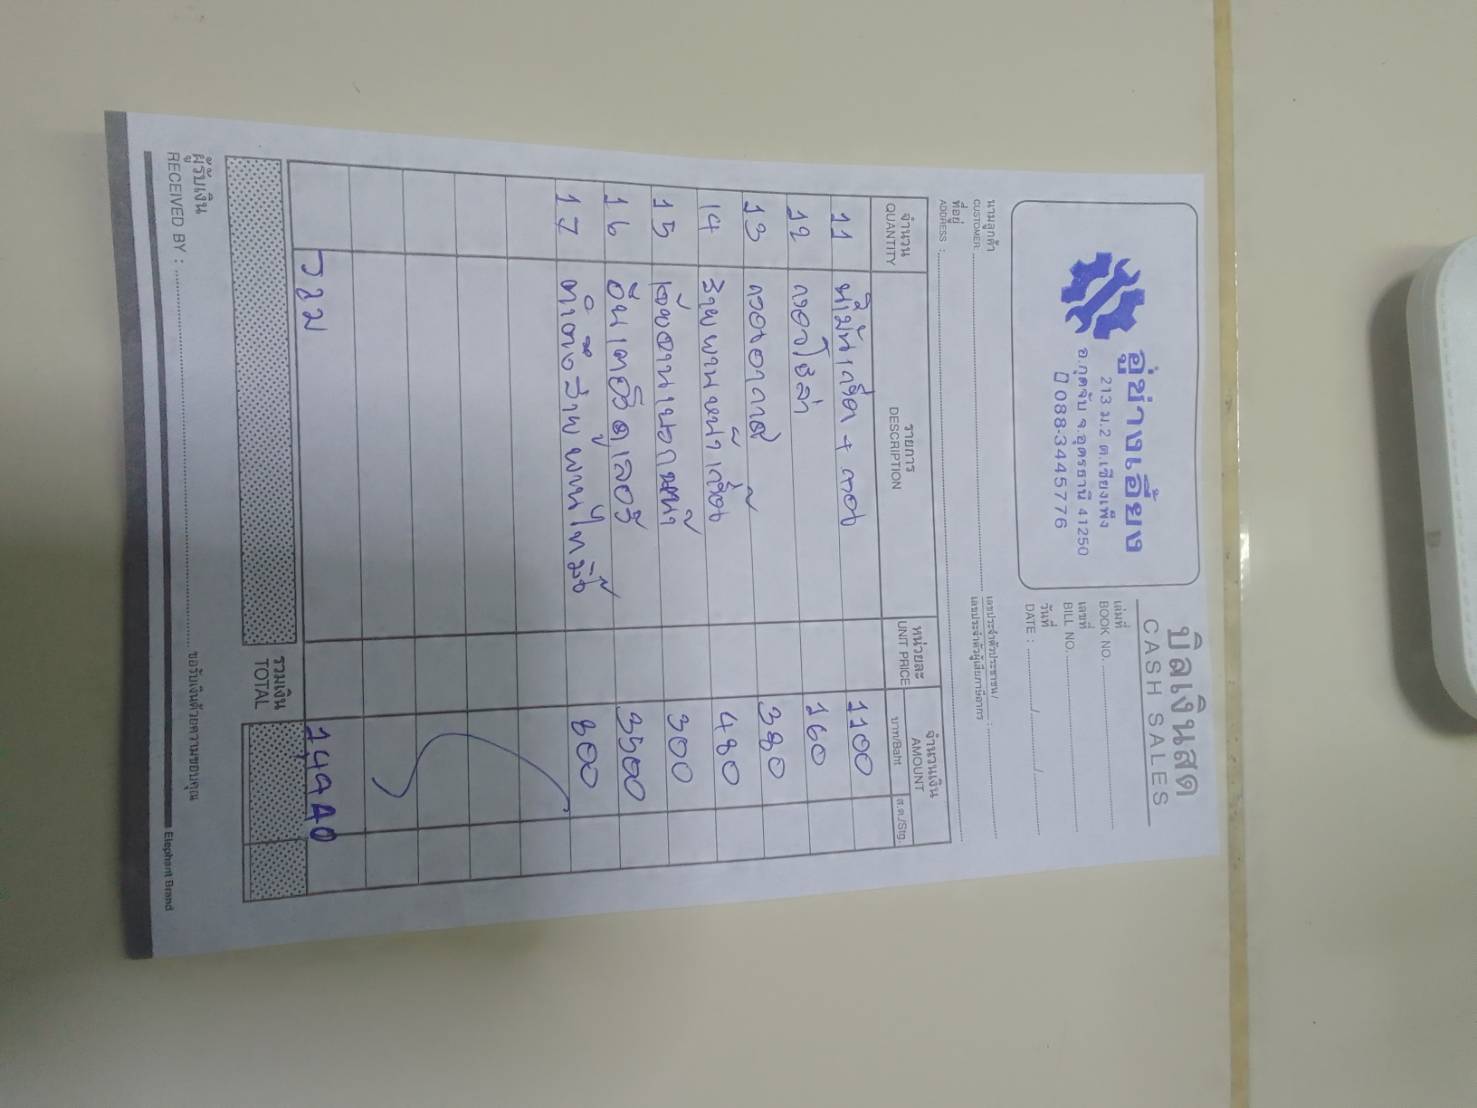 บิลเงินสด
CASH SALES
อู่ช่างเอี้ยง
213 ม.2 ต.เชียงเพ็ง
อ.กุดจับ จ.อุดรธานี 41250
088-3445776
เล่มที่
BOOK NO.
เลขที่
BILL NO.
วันที่
DATE : / /
นามลูกค้า
CUSTOMER:
เลขประจำตัวประชาชน/
เลขประจำตัวผู้เสียภาษีอากร :
ที่อยู่
ADDRESS :
จำนวน รายการ หน่วยละ จำนวนเงิน
QUANTITY DESCRIPTION UNIT PRICE AMOUNT
บาท/Baht ส.ต./Stg.
11 น้ำมันเครื่อง + กรอง 1100
12 กรองโซล่า 160
13 กรองอากาศ 380
14 สายพานหน้าเครื่อง 480
15 300
16 3500
17 สายพานไทม์มิ่ง 800
รวม 14940
รวมเงิน
TOTAL
ผู้รับเงิน
RECEIVED BY : ขอรับเงินด้วยความขอบคุณ
Elephant Brand